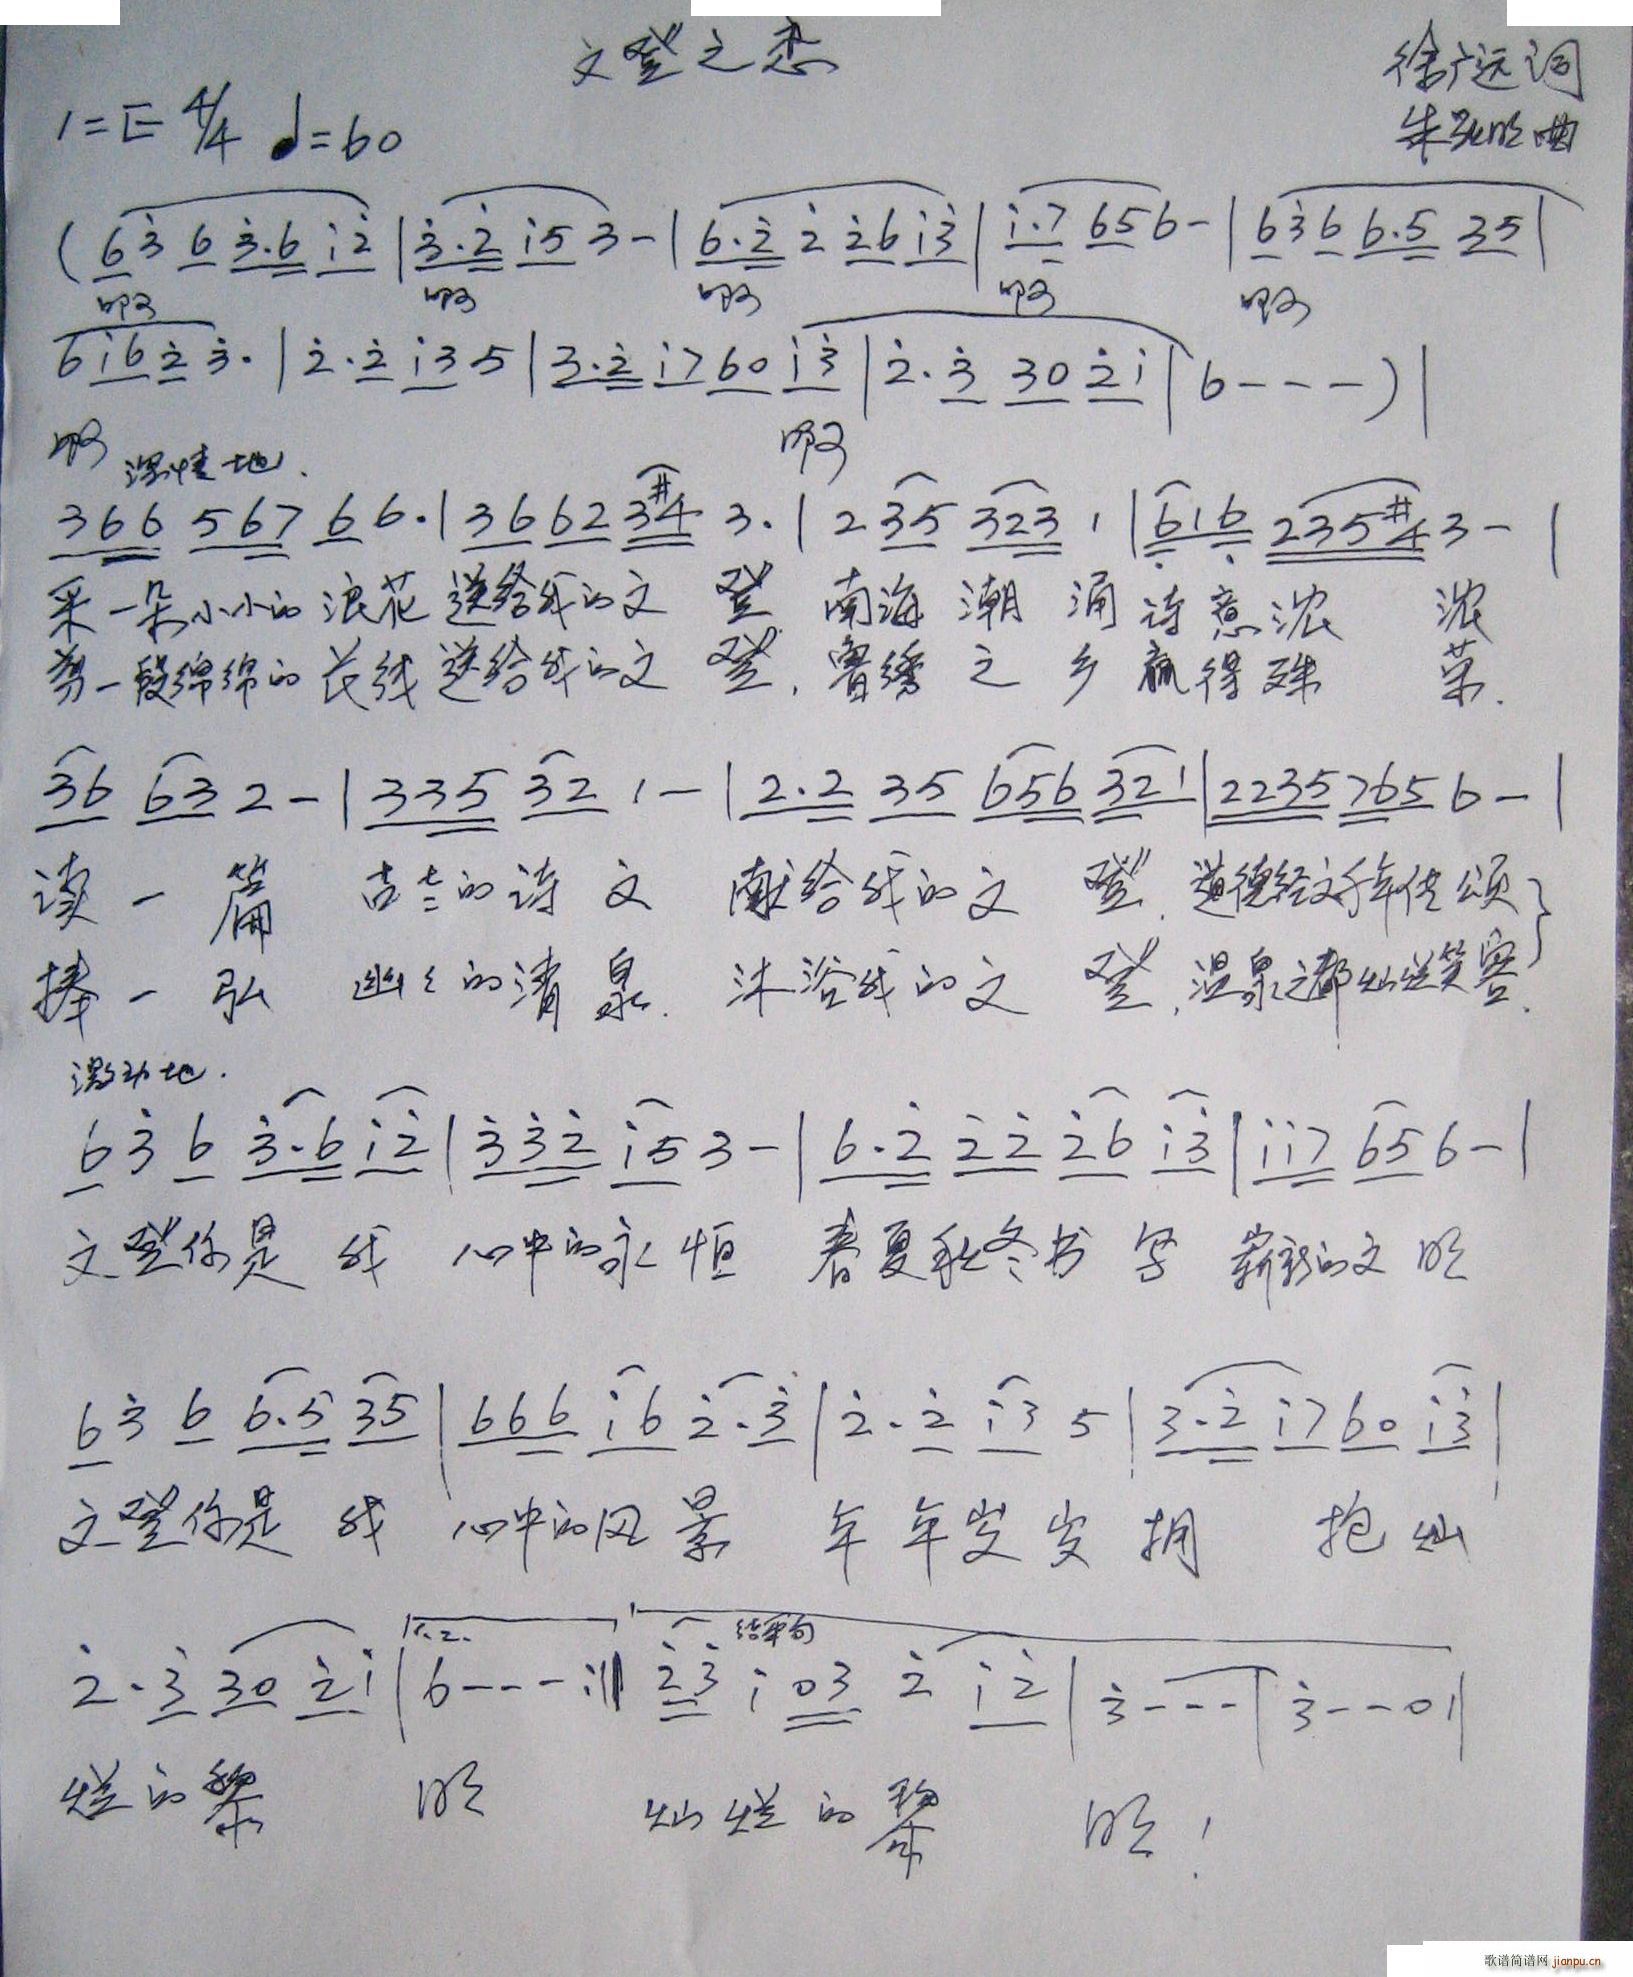 文登之恋
徐广远词
1=E 4/4 ♩=60
曲
(6 3̇ 6 3̇.6 1̇ 2̇ | 3̇.2̇ 1̇ 5 3 - | 6.2̇ 2̇ 2̇ 6 1̇ 3̇ | 1̇.7 6 5 6 - | 6 3̇ 6 6.5 3 5 |
啊 啊 啊 啊 啊
6 1̇ 6 2̇ 3̇. | 2̇.2̇ 1̇ 3 5 | 3.2̇ 1̇ 7 6 0 1̇ 3̇ | 2̇.3̇ 3 0 2̇ 1̇ | 6 - - - ) |
啊 啊
深情地.
3 6 6 5 6 7 6 6. | 3 6 6 2 3 #4 3. | 2 3 5 3 2 3 1 | 6̣ 1 6̣ 2 3 5 #4 3 - |
采一朵小小的浪花送给我的文登 南海潮涌诗意浓浓
剪一段绵绵的长线送给我的文登,鲁绣之乡赢得殊荣.
3 6 6 3 2 - | 3 3 5 3 2 1 - | 2.2 3 5 6 5 6 3 2 1 | 2 2 3 5 7 6 5 6 - |
读一篇 古老的诗文 献给我的文登,道德经文千年传颂
捧一弘 幽幽的清泉.沐浴我的文登,温泉之都灿烂笑容.
激动地.
6 3̇ 6 3̇.6 1̇ 2̇ | 3̇ 3̇ 2̇ 1̇ 5 3 - | 6.2̇ 2̇ 2̇ 2̇ 6 1̇ 3̇ | 1̇ 1̇ 7 6 5 6 - |
文登你是我 心中的永恒 春夏秋冬书写 崭新的文明
6 3̇ 6 6.5 3 5 | 6 6 6 1̇ 6 2̇.3̇ | 2̇.2̇ 1̇ 3 5 | 3.2̇ 1̇ 7 6 0 1̇ 3̇ |
文登你是我 心中的风景 年年岁岁拥抱灿
1.2. 结束句
2̇.3̇ 3 0 2̇ 1̇ | 6 - - - :|| 2̇ 3̇ 1̇ 0 3 2̇ 1̇ 2̇ | 3̇ - - - | 3̇ - - 0 ||
烂的黎明 灿烂的黎明!
歌谱简谱网 jianpu.cn